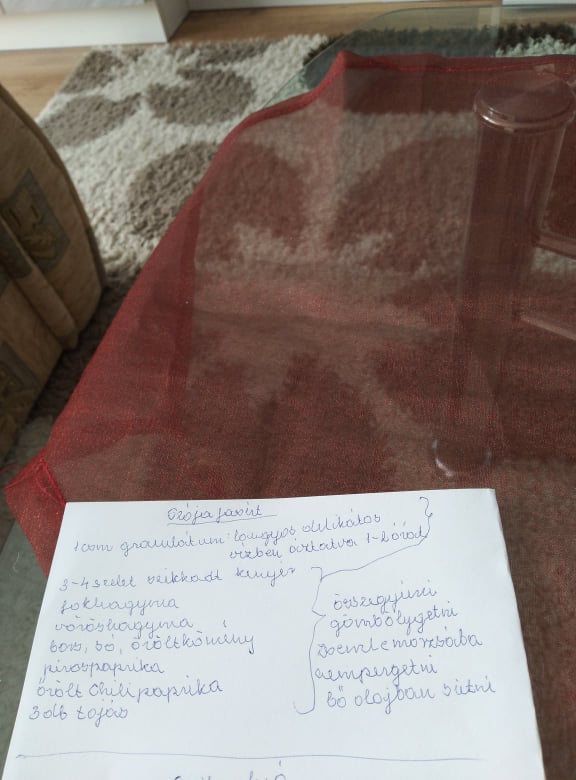 Szójafasírt
1 csom granulátum: langyos delikátos
vízben áztatva 1-2 óráig
3-4 szelet szikkadt kenyér
fokhagyma
vöröshagyma
bors, só, őröltkömény
pirospaprika
őrölt chilipaprika
3 db tojás
összegyúrni
gömbölygetni
zsemlemorzsába
hempergetni
bő olajban sütni